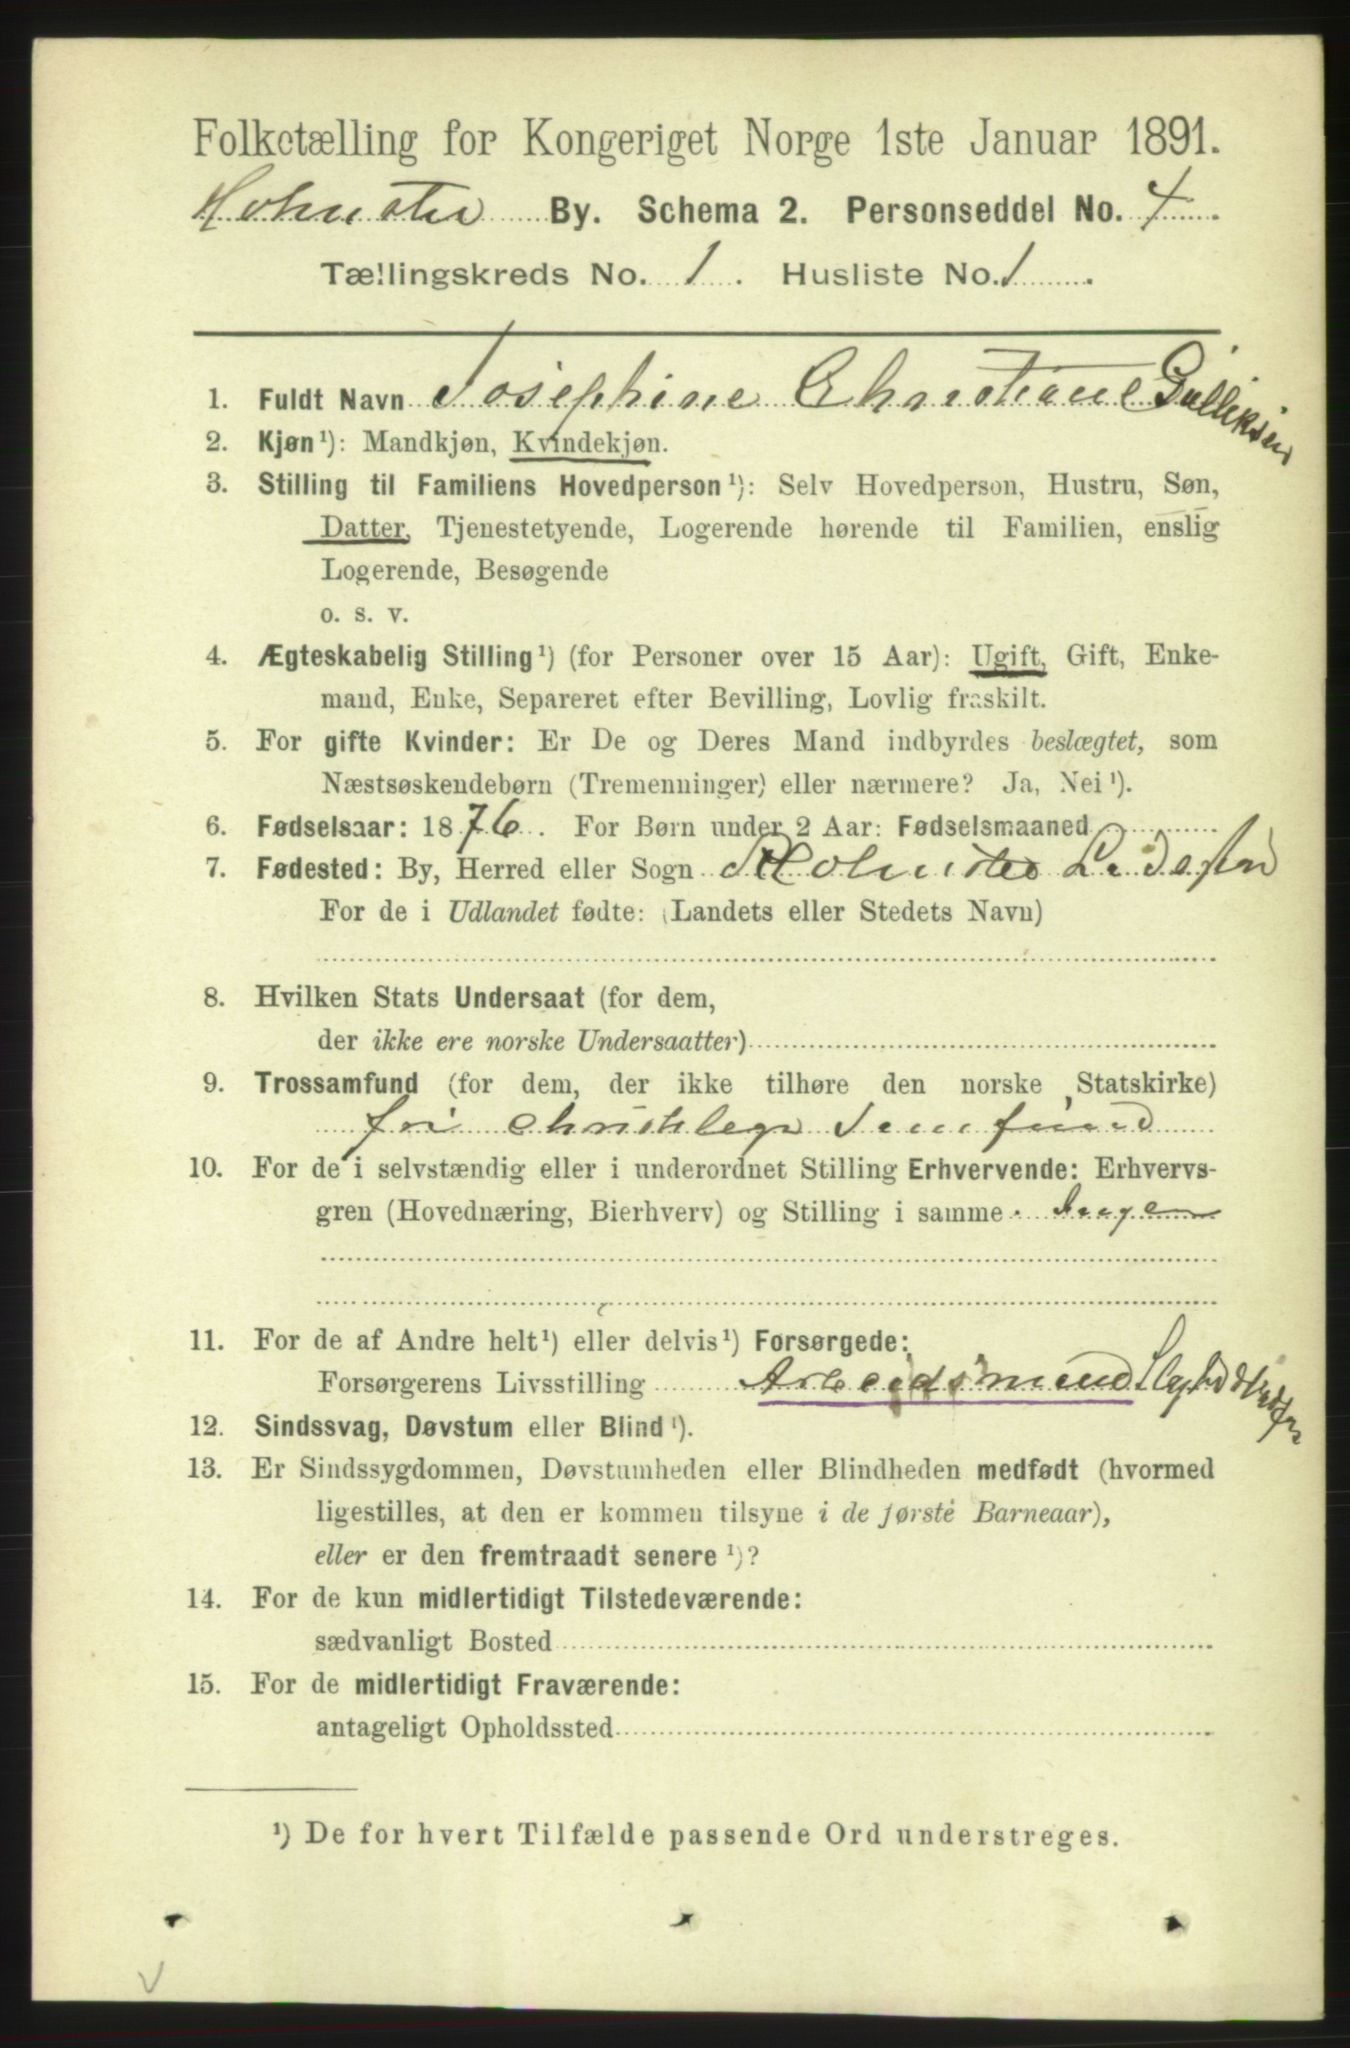 Folketælling for Kongeriget Norge 1ste Januar 1891.
Holmsbo By. Schema 2. Personseddel No. 4
Tællingskreds No. 1. Husliste No. 1
1. Fuldt Navn Josephine Christiane Gulliksen
2. Kjøn ¹): Mandkjøn, Kvindekjøn.
3. Stilling til Familiens Hovedperson ¹): Selv Hovedperson, Hustru, Søn,
Datter, Tjenestetyende, Logerende hørende til Familien, enslig
Logerende, Besøgende
o. s. v.
4. Ægteskabelig Stilling ¹) (for Personer over 15 Aar): Ugift, Gift, Enke-
mand, Enke, Separeret efter Bevilling, Lovlig fraskilt.
5. For gifte Kvinder: Er De og Deres Mand indbyrdes beslægtet, som
Næstsøskendebørn (Tremenninger) eller nærmere? Ja, Nei ¹).
6. Fødselsaar: 1876. For Børn under 2 Aar: Fødselsmaaned
7. Fødested: By, Herred eller Sogn
For de i Udlandet fødte: (Landets eller Stedets Navn)
8. Hvilken Stats Undersaat (for dem,
der ikke ere norske Undersaatter)
9. Trossamfund (for dem, der ikke tilhøre den norske Statskirke)
fri christelege Samfund
10. For de i selvstændig eller i underordnet Stilling Erhvervende: Erhvervs-
gren (Hovednæring, Bierhverv) og Stilling i samme. Ingen
11. For de af Andre helt ¹) eller delvis ¹) Forsørgede:
Forsørgerens Livsstilling Arbeidsmand
12. Sindssvag, Døvstum eller Blind ¹).
13. Er Sindssygdommen, Døvstumheden eller Blindheden medfødt (hvormed
ligestilles, at den er kommen tilsyne i de første Barneaar),
eller er den fremtraadt senere ¹)?
14. For de kun midlertidigt Tilstedeværende:
sædvanligt Bosted
15. For de midlertidigt Fraværende:
antageligt Opholdssted
¹) De for hvert Tilfælde passende Ord understreges.